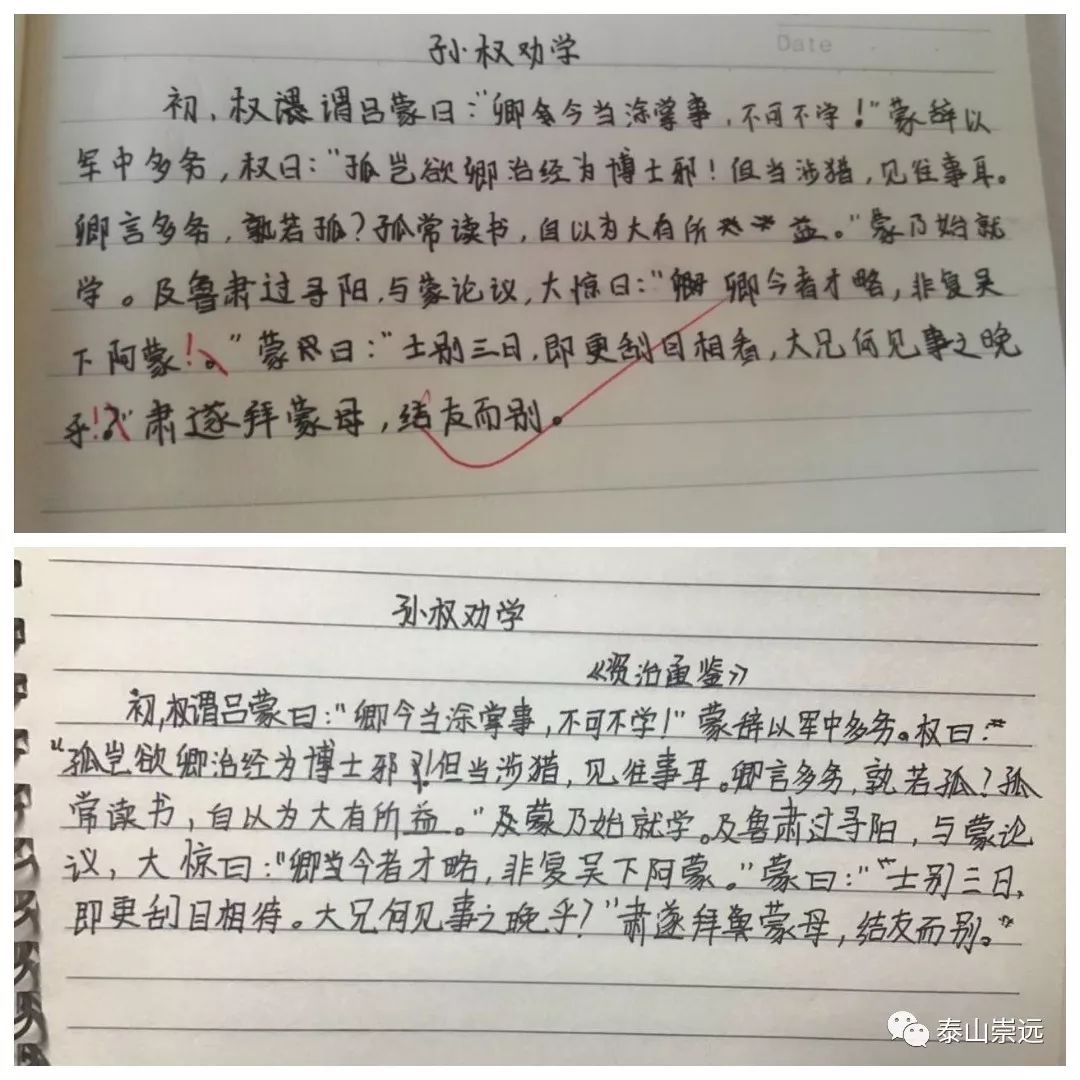 Date
孙权劝学
初，权谓吕蒙曰："卿今当涂掌事，不可不学！"蒙辞以
军中多务，权曰："孤岂欲卿治经为博士邪！但当涉猎，见往事耳。
卿言多务，孰若孤？孤常读书，自以为大有所益。"蒙乃始就
学。及鲁肃过寻阳，与蒙论议，大惊曰："卿今者才略，非复吴
下阿蒙！。"蒙曰："士别三日，即更刮目相看，大兄何见事之晚
乎！？"肃遂拜蒙母，结友而别。
孙权劝学
《资治通鉴》
初，权谓吕蒙曰："卿今当涂掌事，不可不学！"蒙辞以军中多务。权曰：
"孤岂欲卿治经为博士邪！但当涉猎，见往事耳。卿言多务，孰若孤？孤
常读书，自以为大有所益。"及蒙乃始就学。及鲁肃过寻阳，与蒙论
议，大惊曰："卿当今者才略，非复吴下阿蒙。"蒙曰："士别三日，
即更刮目相待。大兄何见事之晚乎？"肃遂拜蒙母，结友而别。"
泰山崇远